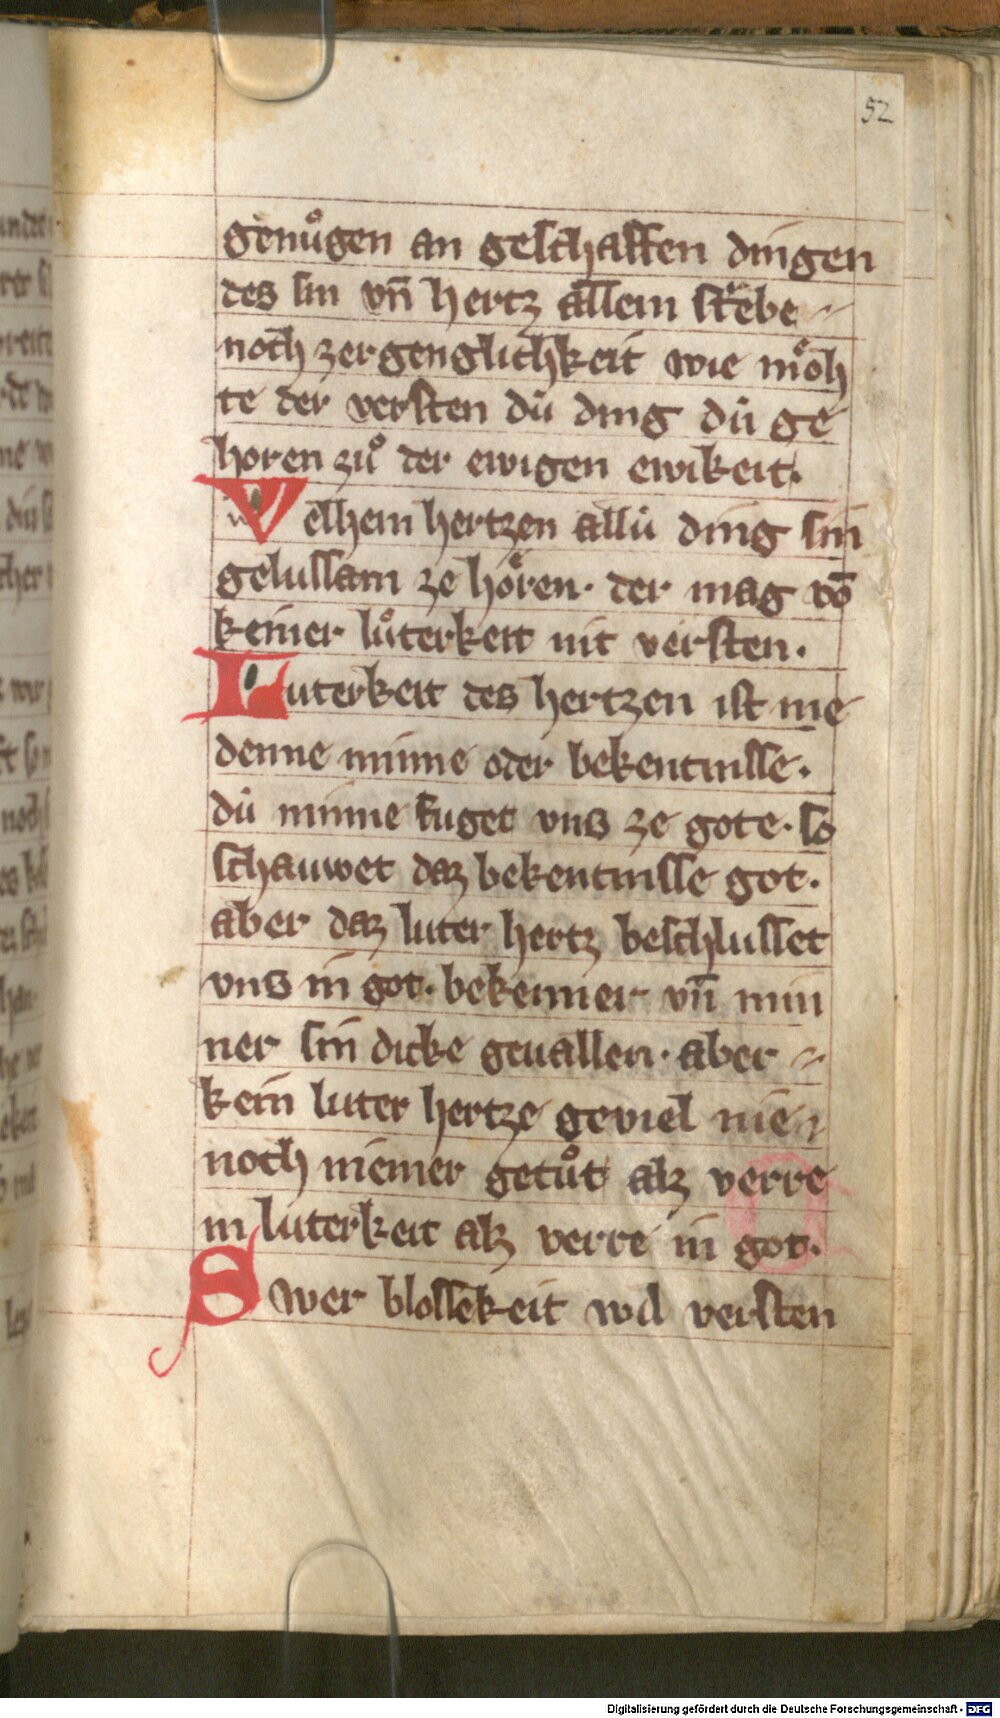 52
genuͦgen an geschaffen dingen
des sin vn̄ hertz allem strebe
noch zergenglichkeit wie moͤh
te der versten dû ding dû ge
horen zuͦ der ewigen ewikeit.
Welhem hertzen allû ding sin
gelussam ze hoͤren. der mag vō
keiner luͦterkeit nit versten.
Luterkeit des hertzen ist me
denne minne oder bekentnisse.
dû minne fuget vns ze gote. so
schauwet daz bekentnisse got.
aber daz luter hertz beschlusset
vns in got. bekenner vn̄ min
ner sin dicke geuallen. aber
kein luter hertze geviel nie
noch niemer getuͦt alz verre
in luterkeit alz verre in got.
Swer blossekeit wil versten
Digitalisierung gefördert durch die Deutsche Forschungsgemeinschaft - DFG